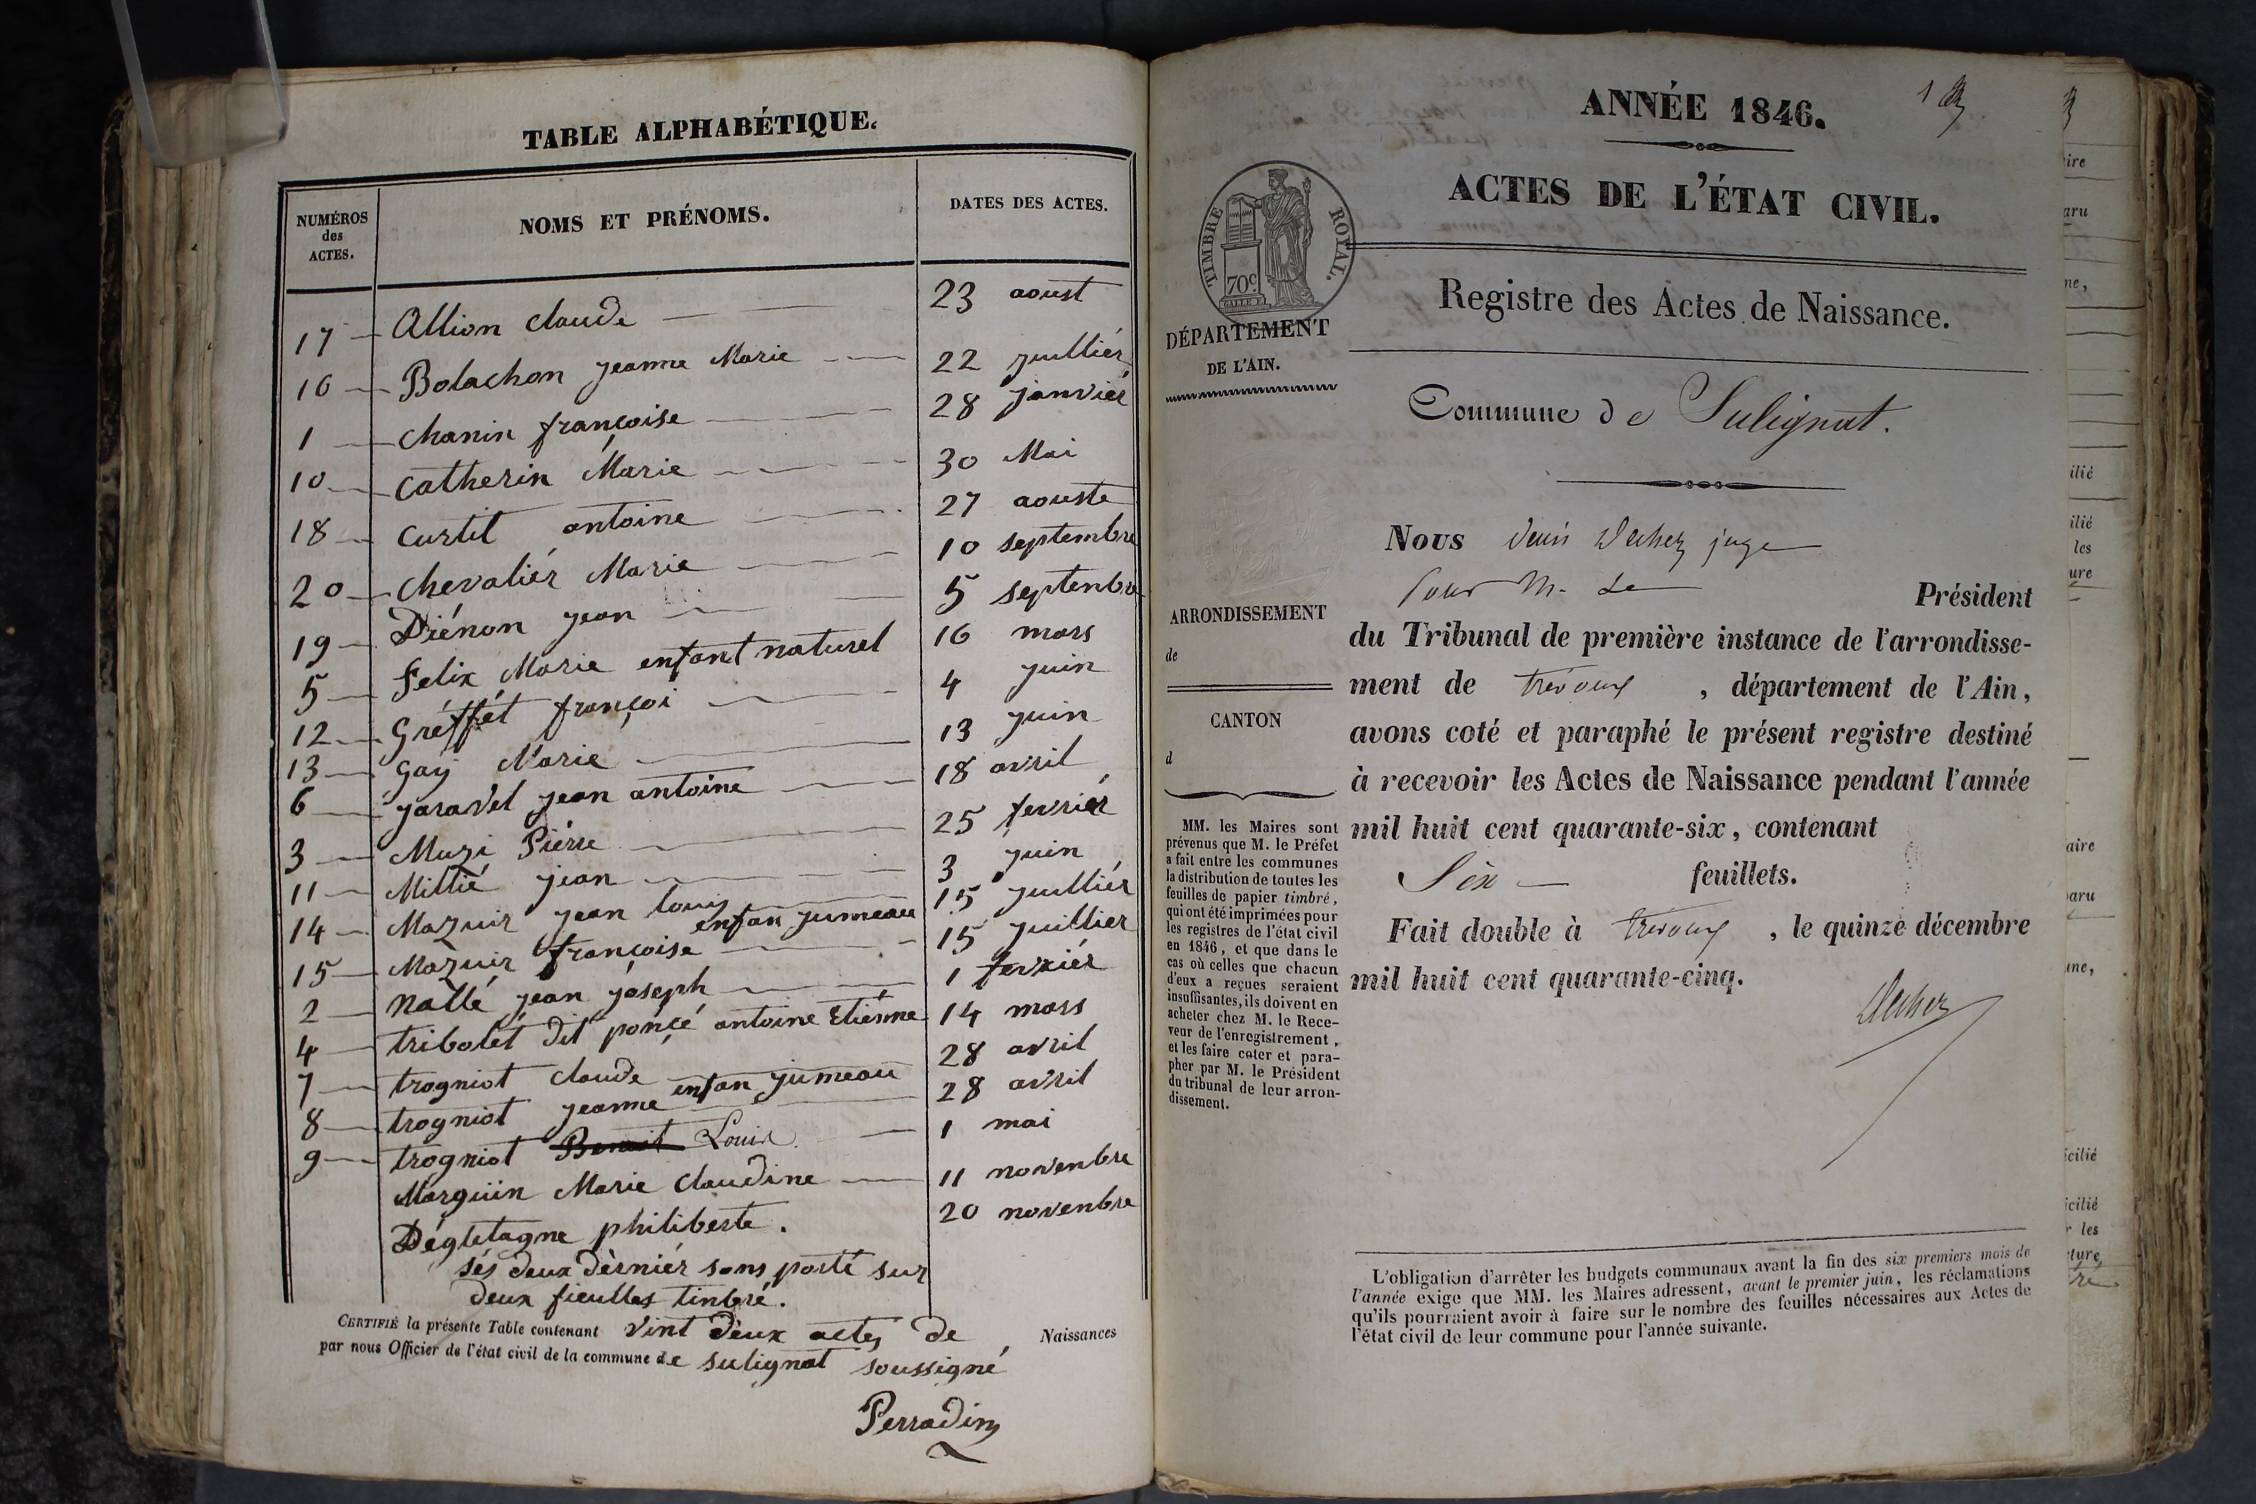 TABLE ALPHABÉTIQUE.
NUMÉROS des ACTES. NOMS ET PRÉNOMS. DATES DES ACTES.
17 Allion claude 23 aoust
16 Bolachon jeanne Marie 22 juilliér
1 chanin françoise 28 janviér
10 catherin Marie 30 Mai
18 curtil antoine 27 aouste
20 chevaliér Marie 10 septembre
19 Diénon jean 5 septenbre
5 felix Marie enfant naturel 16 mars
12 Gréffét françoi 4 juin
13 gay Marie 13 juin
6 jaravel jean antoine 18 avril
3 Muzi Piérre 25 fevriér
11 Millié jean 3 juin
14 Mazuir jean louis 15 juilliér
enfan jumeau
15 Mazuir françoise 15 juillier
2 nallé jean jóseph 1 fevriér
4 tribolét dit ponçé antoine Etiénne 14 mars
7 trogniot claude 28 avril
enfan jumeau
8 trogniot jeanne 28 avril
9 trogniot Benoit Louis 1 mai
Marguin Marie claudine 11 novenbre
Dégletagne philiberte. 20 novenbre
sés deux dèrniér sons porté sur
deux fieulles tinbré.
CERTIFIÉ la présente Table contenant vint deux actes de Naissances
par nous Officier de l'état civil de la commune de sulignat soussigné
Perradin
ANNÉE 1846.
ACTES DE L'ÉTAT CIVIL.
TIMBRE ROYAL.
70c
Registre des Actes de Naissance.
DÉPARTEMENT
DE L'AIN.
Commune de Sulignat.
Nous Denis Dechez juge
Pour M. Le Président
ARRONDISSEMENT
de
du Tribunal de première instance de l'arrondisse-
ment de trévoux , département de l'Ain,
CANTON
d
avons coté et paraphé le présent registre destiné
à recevoir les Actes de Naissance pendant l'année
mil huit cent quarante-six, contenant
Six feuillets.
Fait double à trévoux , le quinze décembre
mil huit cent quarante-cinq.
Dechez
MM. les Maires sont
prévenus que M. le Préfet
a fait entre les communes
la distribution de toutes les
feuilles de papier timbré,
qui ont été imprimées pour
les registres de l'état civil
en 1846, et que dans le
cas où celles que chacun
d'eux a reçues seraient
insuffisantes, ils doivent en
acheter chez M. le Rece-
veur de l'enregistrement,
et les faire coter et para-
pher par M. le Président
du tribunal de leur arron-
dissement.
L'obligation d'arrêter les budgets communaux avant la fin des six premiers mois de
l'année exige que MM. les Maires adressent, avant le premier juin, les réclamations
qu'ils pourraient avoir à faire sur le nombre des feuilles nécessaires aux Actes de
l'état civil de leur commune pour l'année suivante.